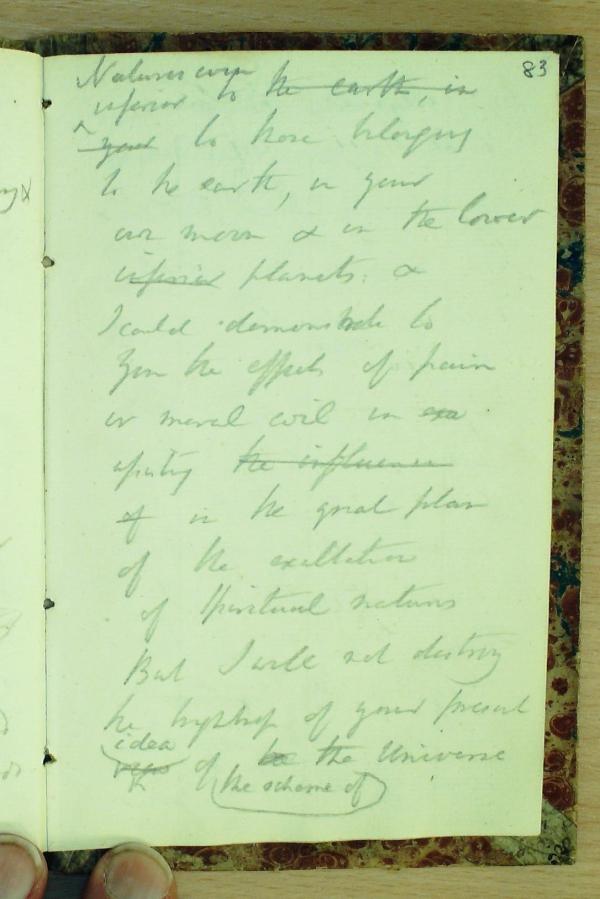 83
Natures even
inferior to the earth, in
your to those belonging
to the earth, in your
own moon & in the lower
inferior planets: &
I could demonstrate to
you the effects of pain
or moral evil in
the influence
of in the great plan
of the exaltation
of Spiritual natures
But I will not destroy
the of your present
idea
of the the Universe
the scheme of